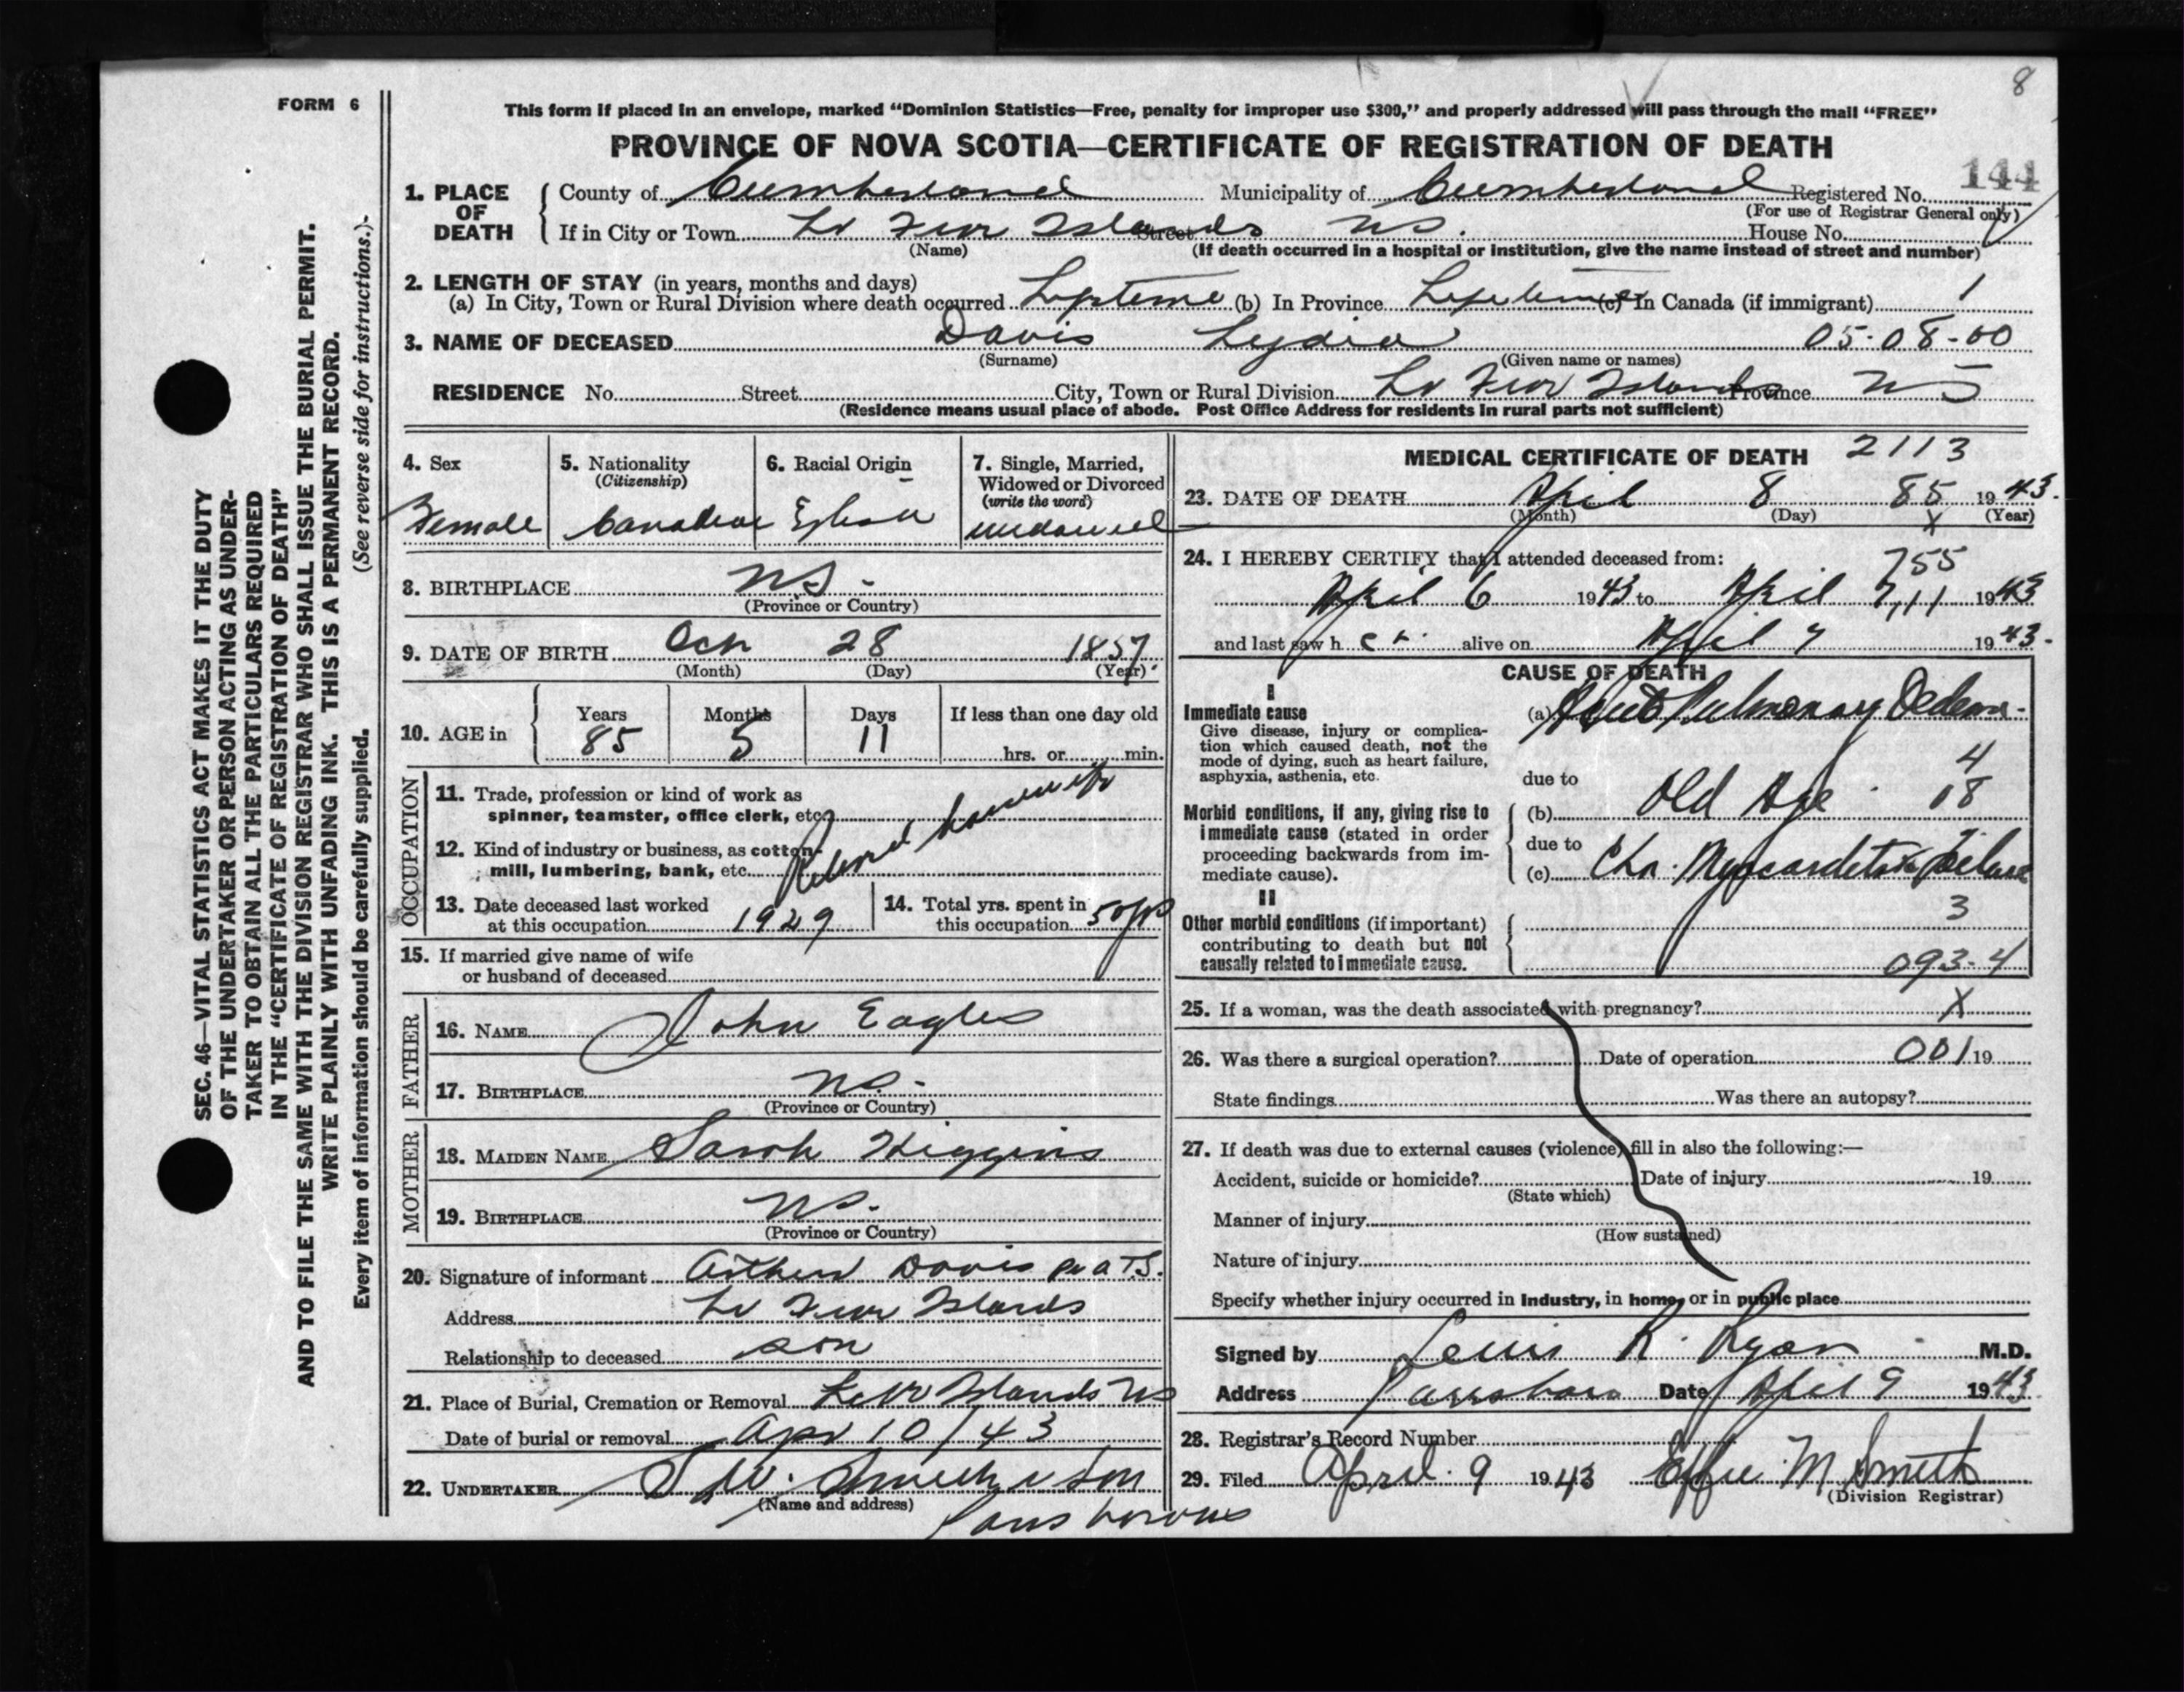 8
FORM 6
This form if placed in an envelope, marked “Dominion Statistics—Free, penalty for improper use $300,” and properly addressed will pass through the mail “FREE”
PROVINCE OF NOVA SCOTIA—CERTIFICATE OF REGISTRATION OF DEATH
144
1. PLACE OF DEATH
County of Cumberland Municipality of Cumberland Registered No.
(For use of Registrar General only)
If in City or Town Lr Five Islands Street NS. House No.
(Name) (If death occurred in a hospital or institution, give the name instead of street and number)
2. LENGTH OF STAY (in years, months and days)
(a) In City, Town or Rural Division where death occurred Lifetime (b) In Province Lifetime (c) In Canada (if immigrant) 1
3. NAME OF DECEASED Davis Lydia 05-08-00
(Surname) (Given name or names)
RESIDENCE No. Street City, Town or Rural Division Lr Five Islands Province NS
(Residence means usual place of abode. Post Office Address for residents in rural parts not sufficient)
4. Sex
Female
5. Nationality
(Citizenship)
Canadian
6. Racial Origin
English
7. Single, Married,
Widowed or Divorced
(write the word)
widowed
8. BIRTHPLACE NS.
(Province or Country)
9. DATE OF BIRTH Oct 28 1857
(Month) (Day) (Year)
10. AGE in
Years Months Days If less than one day old
85 5 11 hrs. or min.
OCCUPATION
11. Trade, profession or kind of work as
spinner, teamster, office clerk, etc.
Retired housewife
12. Kind of industry or business, as cotton-
mill, lumbering, bank, etc.
13. Date deceased last worked
at this occupation 1929
14. Total yrs. spent in
this occupation 50 yrs
15. If married give name of wife
or husband of deceased
FATHER
16. NAME John Eagles
17. BIRTHPLACE NS.
(Province or Country)
MOTHER
18. MAIDEN NAME Sarah Higgins
19. BIRTHPLACE NS.
(Province or Country)
20. Signature of informant Arthur Davis
Address Lr Five Islands
Relationship to deceased son
21. Place of Burial, Cremation or Removal Islands NS
Date of burial or removal Apr 10/43
22. UNDERTAKER Smith & Son
(Name and address)
Parrsboro
MEDICAL CERTIFICATE OF DEATH 2113
23. DATE OF DEATH April 8 85 1943.
(Month) (Day) X (Year)
24. I HEREBY CERTIFY that I attended deceased from:
755
April 6 1943 to April 7, 11 1943
and last saw h er alive on April 7 1943.
CAUSE OF DEATH
I
Immediate cause
Give disease, injury or complica-
tion which caused death, not the
mode of dying, such as heart failure,
asphyxia, asthenia, etc.
(a) Acute Pulmonary Oedema
4
due to
Morbid conditions, if any, giving rise to
immediate cause (stated in order
proceeding backwards from im-
mediate cause).
(b) Old Age 08
due to
(c) Chr. Myocarditis Failure
II
Other morbid conditions (if important)
contributing to death but not
causally related to immediate cause.
3
093-4
25. If a woman, was the death associated with pregnancy? X
26. Was there a surgical operation? Date of operation 001 19
State findings Was there an autopsy?
27. If death was due to external causes (violence) fill in also the following:—
Accident, suicide or homicide? Date of injury 19
(State which)
Manner of injury
(How sustained)
Nature of injury
Specify whether injury occurred in industry, in home, or in public place
Signed by Lewis R. Ryan M.D.
Address Parrsboro Date April 9 1943
28. Registrar's Record Number
29. Filed April 9 1943 Effie M Smith
(Division Registrar)
SEC. 46—VITAL STATISTICS ACT MAKES IT THE DUTY
OF THE UNDERTAKER OR PERSON ACTING AS UNDER-
TAKER TO OBTAIN ALL THE PARTICULARS REQUIRED
IN THE “CERTIFICATE OF REGISTRATION OF DEATH”
AND TO FILE THE SAME WITH THE DIVISION REGISTRAR WHO SHALL ISSUE THE BURIAL PERMIT.
WRITE PLAINLY WITH UNFADING INK. THIS IS A PERMANENT RECORD.
Every item of information should be carefully supplied. (See reverse side for instructions.)